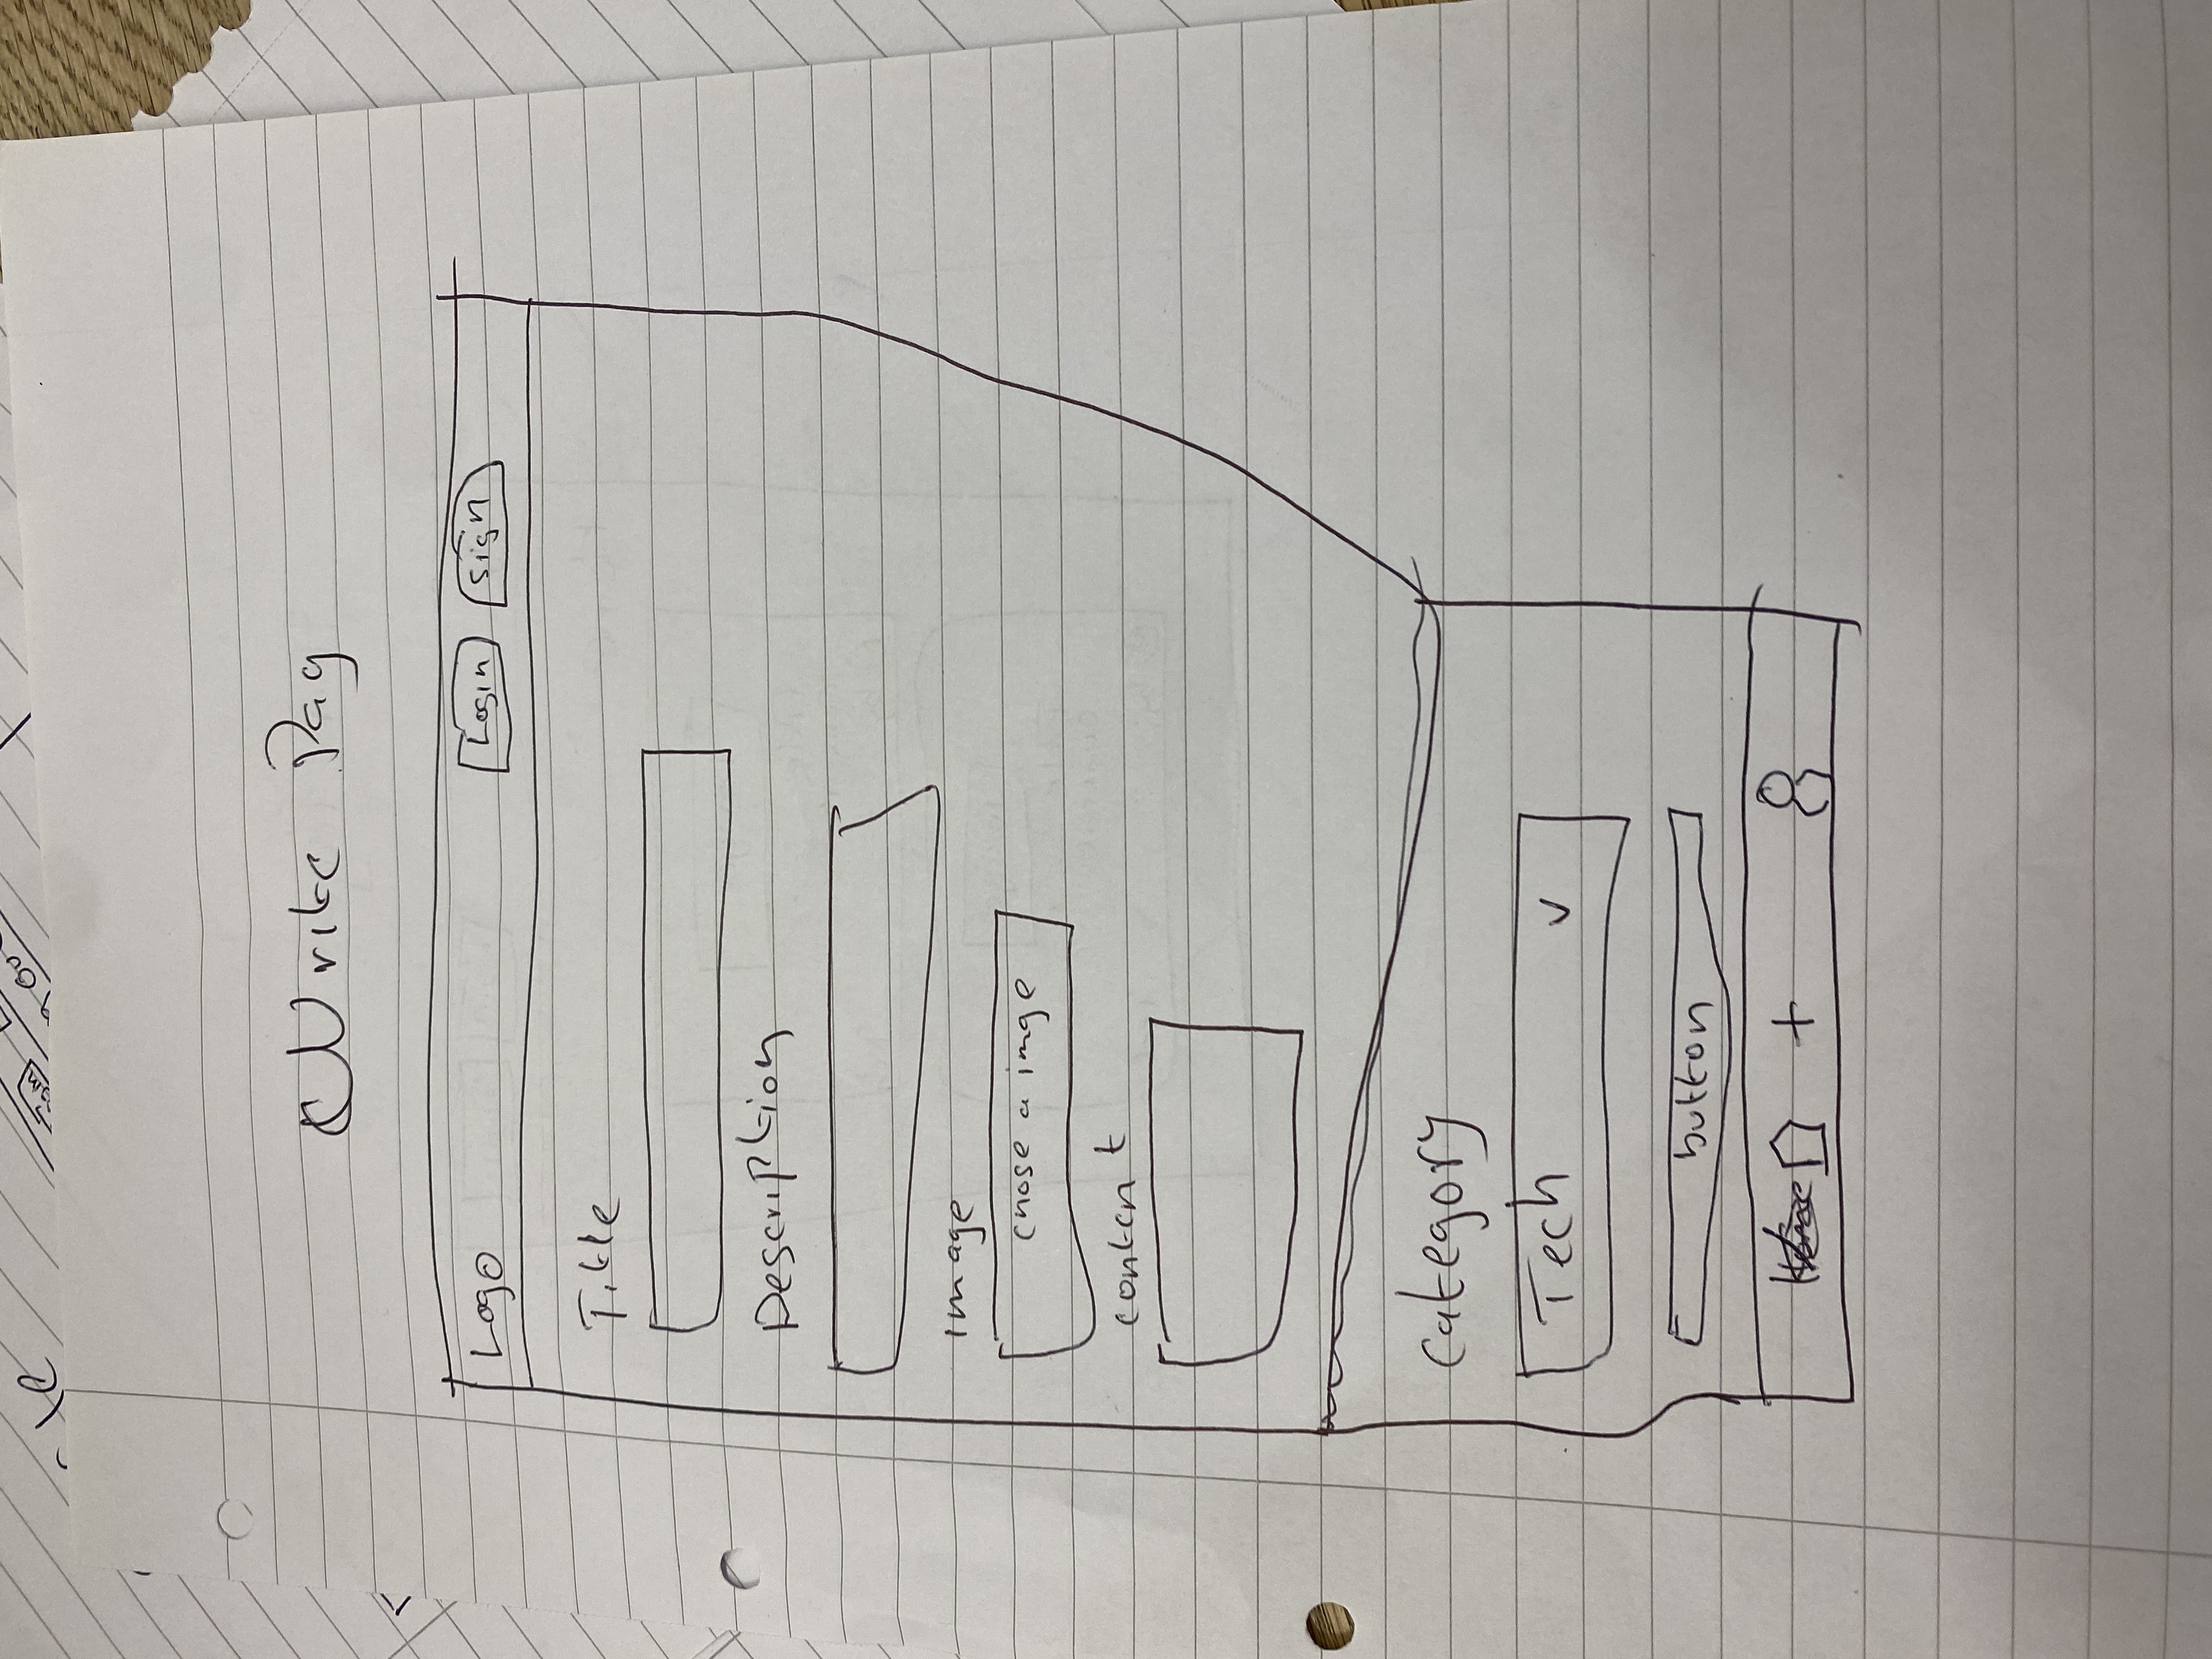 Write Pag
Logo Login sign
Title
Description
image
chose a imge
content
category
Tech v
button
+